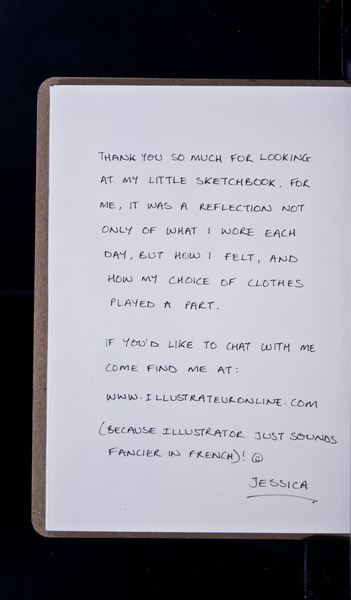 THANK YOU SO MUCH FOR LOOKING
AT MY LITTLE SKETCHBOOK. FOR
ME, IT WAS A REFLECTION NOT
ONLY OF WHAT I WORE EACH
DAY, BUT HOW I FELT, AND
HOW MY CHOICE OF CLOTHES
PLAYED A PART.
IF YOU'D LIKE TO CHAT WITH ME
COME FIND ME AT:
WWW.ILLUSTRATEURONLINE.COM
(BECAUSE ILLUSTRATOR JUST SOUNDS
FANCIER IN FRENCH)! ☺
JESSICA